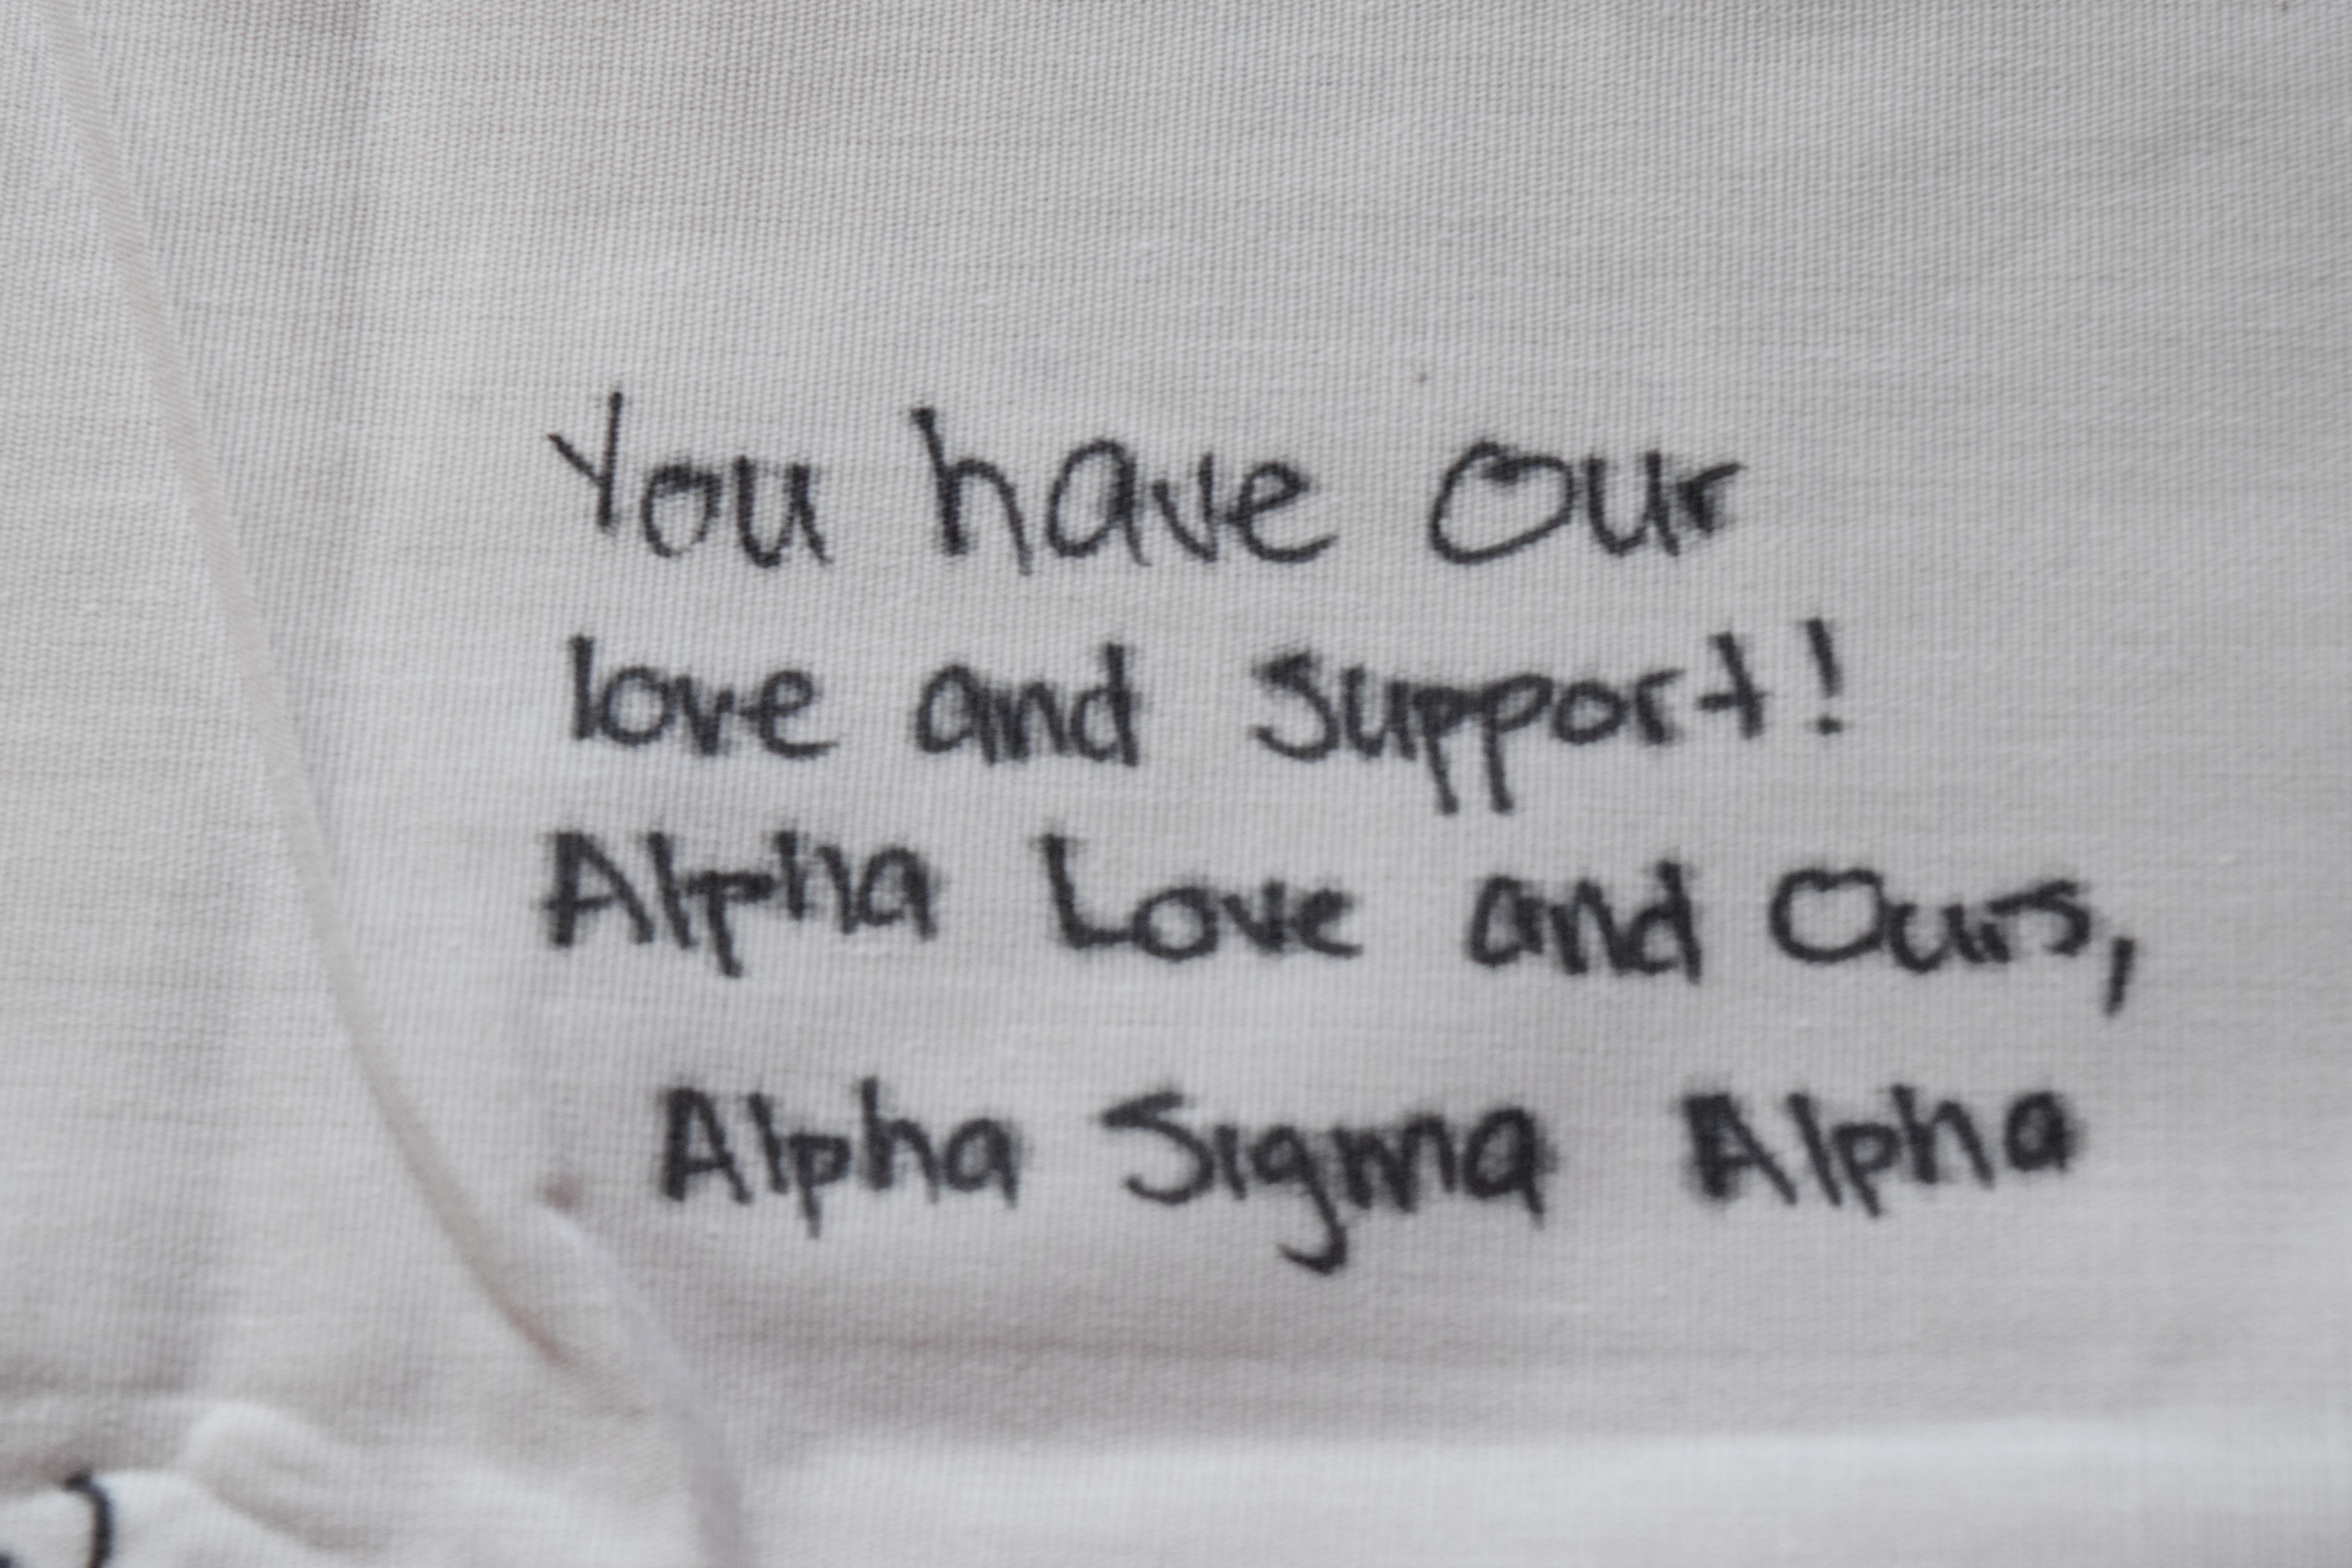 You have our
love and support!
Alpha Love and Ours,
Alpha Sigma Alpha